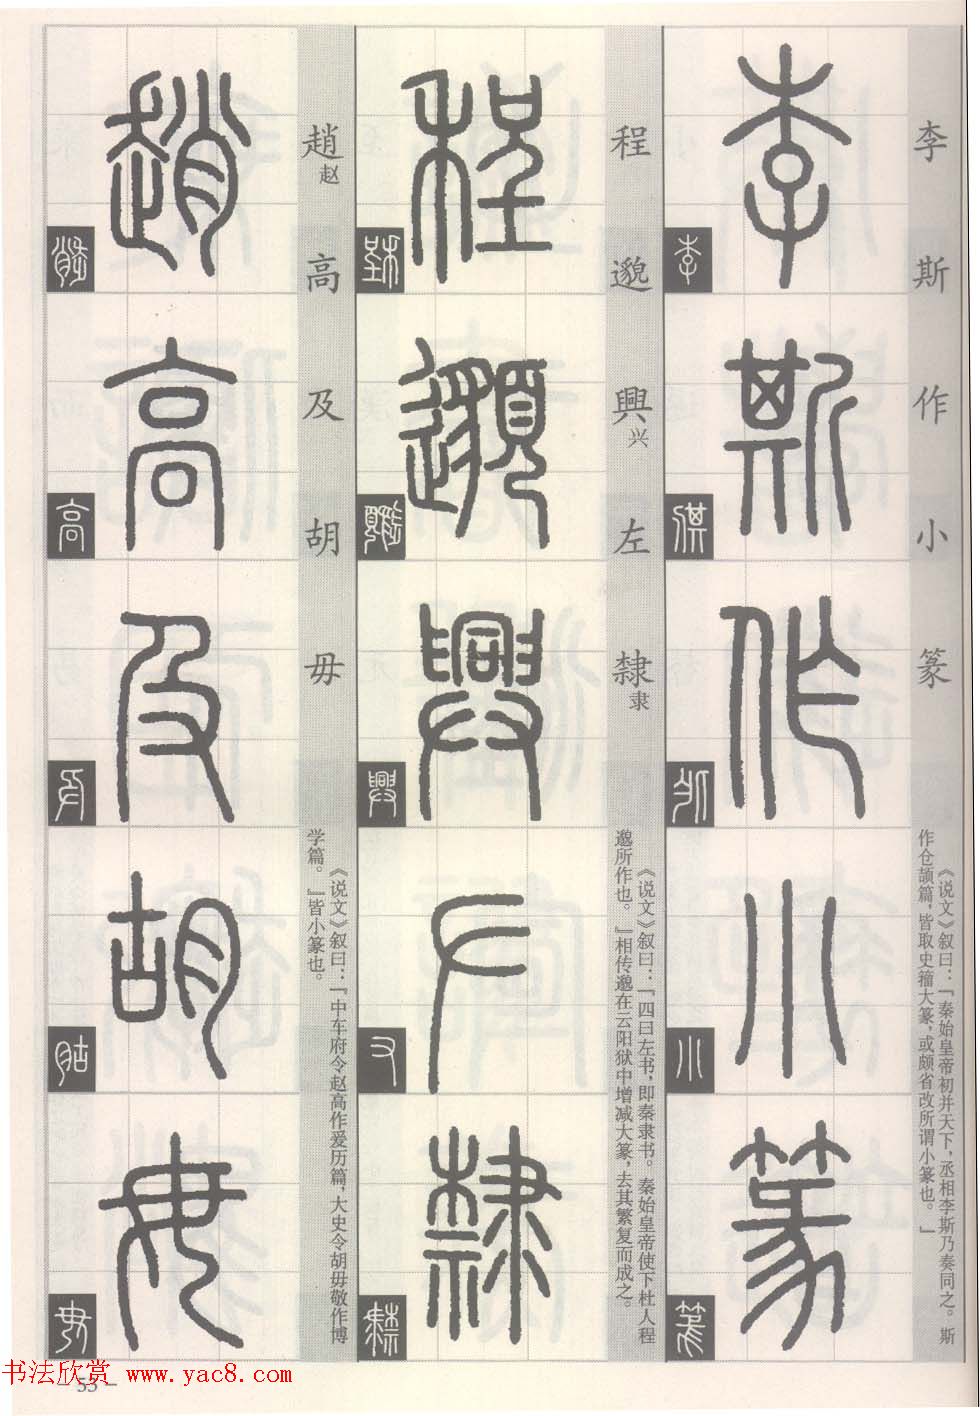 李斯作小篆
李斯作小篆
《说文》叙曰：『秦始皇帝初并天下，丞相李斯乃奏同之。斯
作仓颉篇，皆取史籀大篆，或颇省改所谓小篆也。』
程邈興兴左隸隶
程邈興左隸
《说文》叙曰：『四曰左书，即秦隶书。秦始皇帝使下杜人程
邈所作也。』相传邈在云阳狱中增减大篆，去其繁复而成之。
趙赵高及胡毋
趙高及胡毋
《说文》叙曰：『中车府令赵高作爰历篇，大史令胡毋敬作博
学篇。』皆小篆也。
书法欣赏 www.yac8.com
- 53 -